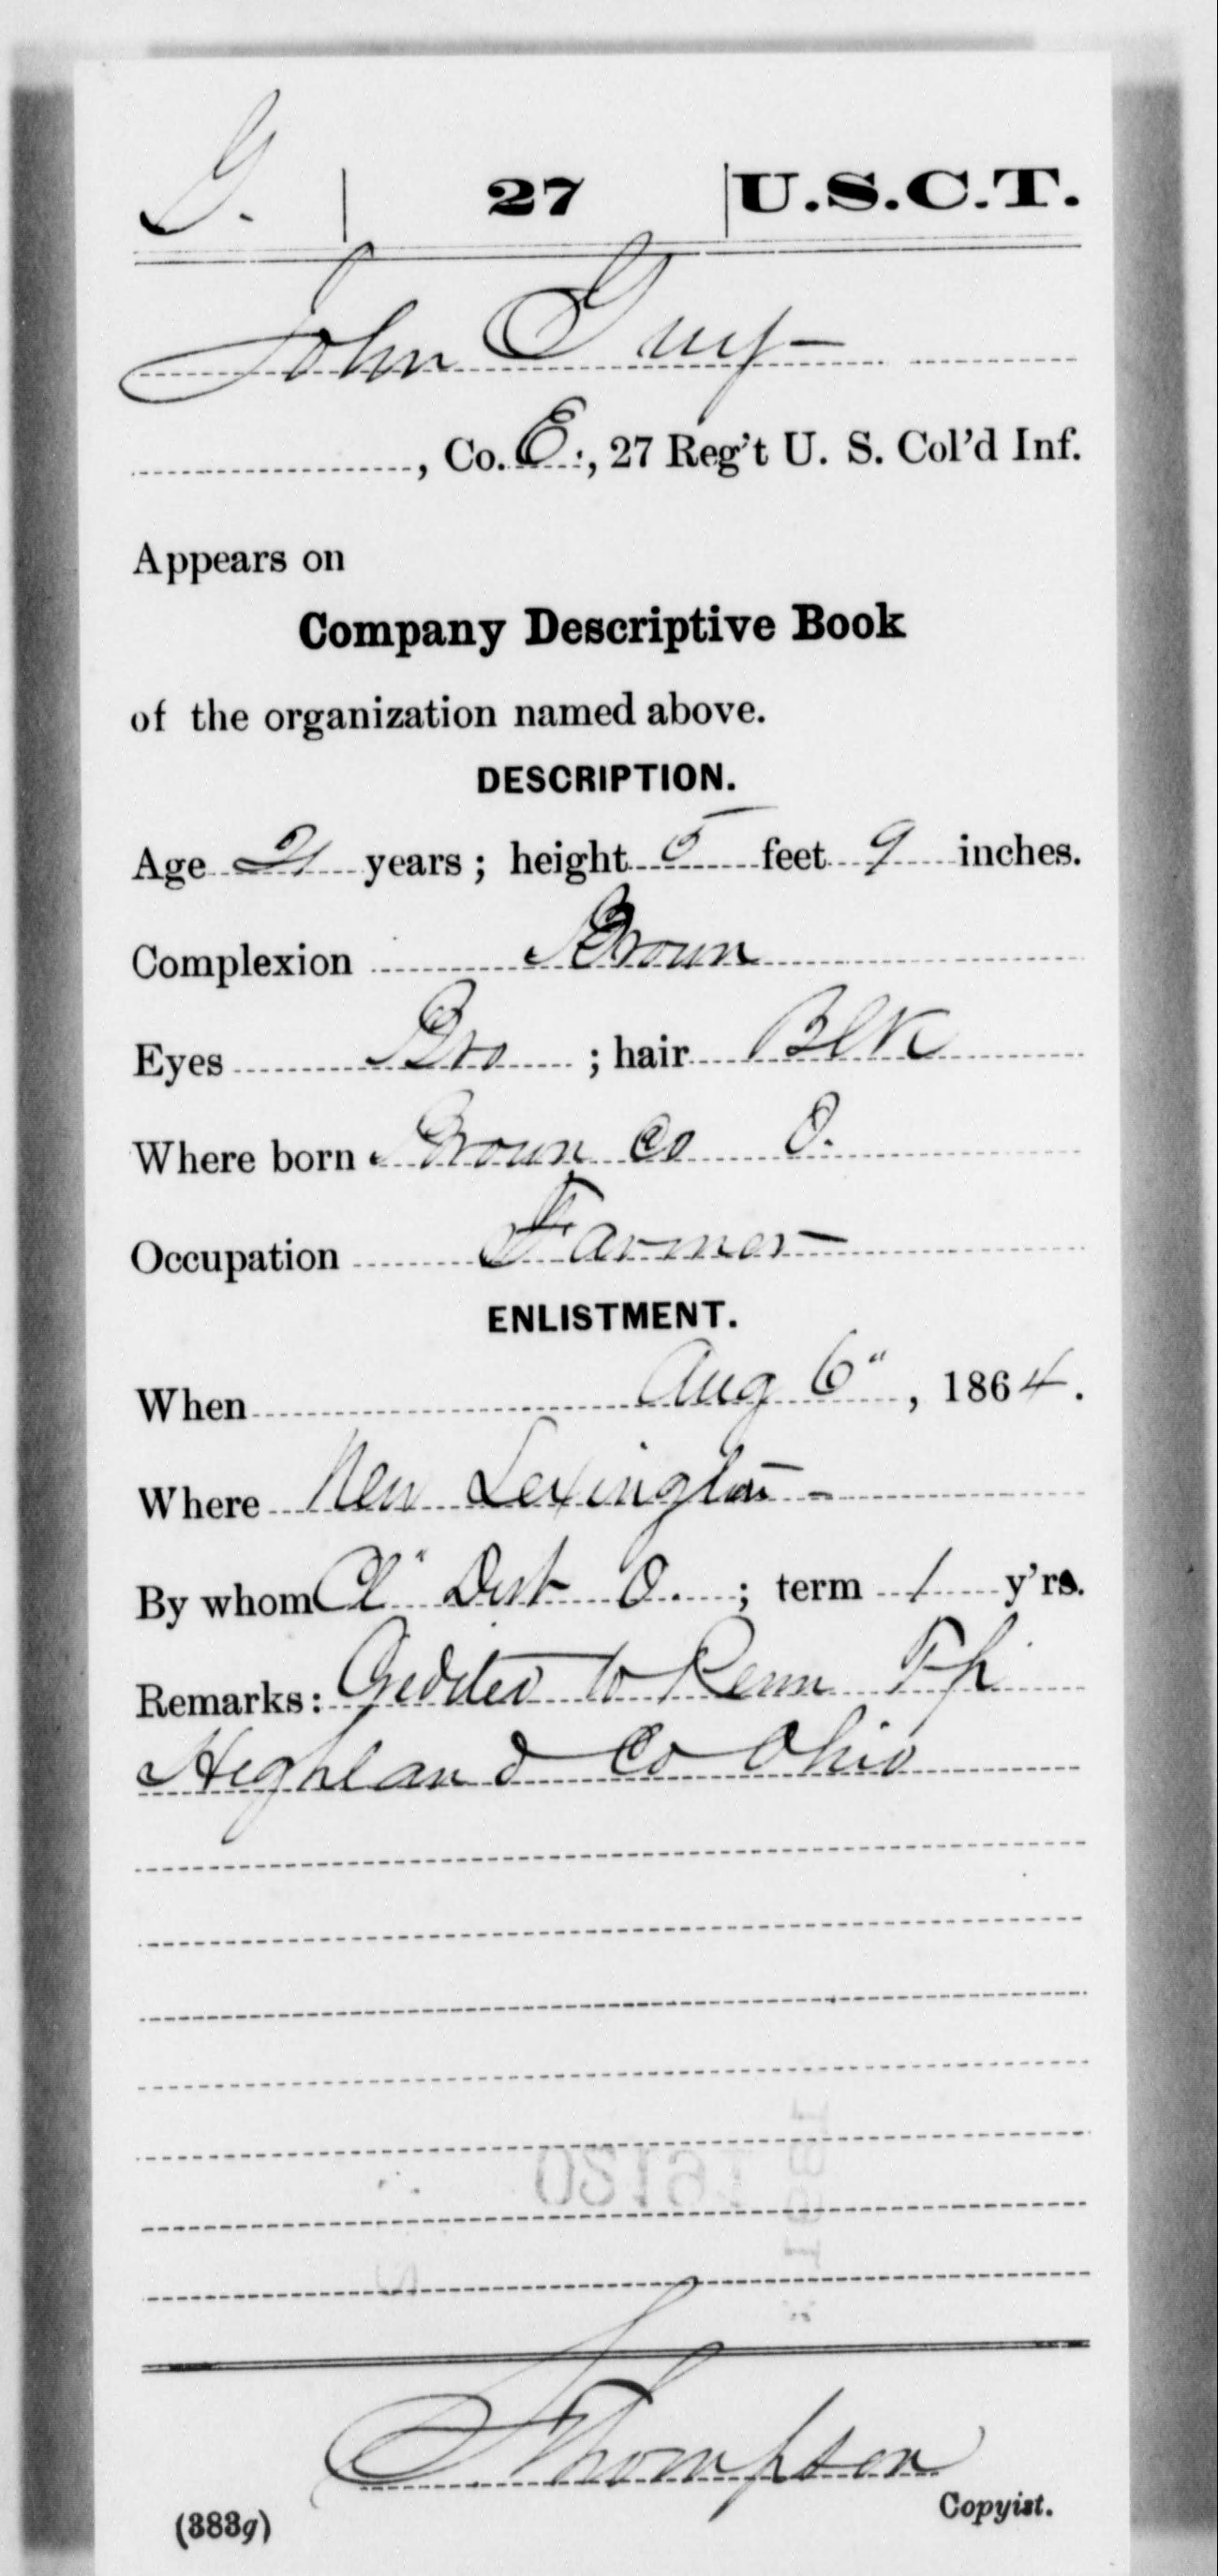 G. 27 U.S.C.T.
John Guy
, Co. E., 27 Reg't U. S. Col'd Inf.
Appears on
Company Descriptive Book
of the organization named above.
DESCRIPTION.
Age 21 years; height 5 feet 9 inches.
Complexion Brown
Eyes Bro ; hair Blk
Where born Brown Co O.
Occupation Farmer
ENLISTMENT.
When Aug 6", 1864.
Where New Lexington
By whom Dist O. ; term 1 y'rs.
Remarks: Credited to Penn Tp
Highland Co Ohio
Thompson
Copyist.
(383g)